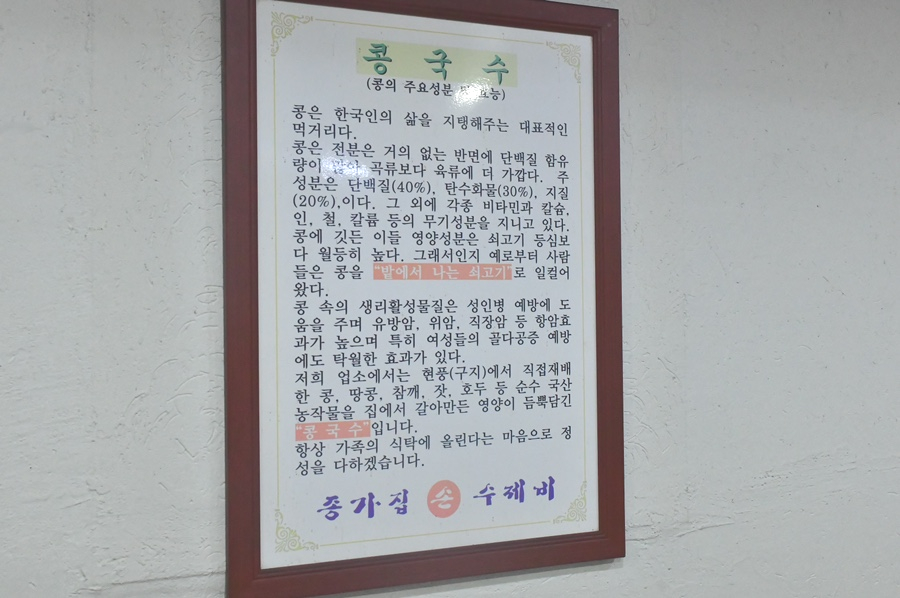 콩 국 수
(콩의 주요성분 및 효능)
콩은 한국인의 삶을 지탱해주는 대표적인
먹거리다.
콩은 전분은 거의 없는 반면에 단백질 함유
량이 곡류보다 육류에 더 가깝다. 주
성분은 단백질(40%), 탄수화물(30%), 지질
(20%),이다. 그 외에 각종 비타민과 칼슘,
인, 철, 칼륨 등의 무기성분을 지니고 있다.
콩에 깃든 이들 영양성분은 쇠고기 등심보
다 월등히 높다. 그래서인지 예로부터 사람
들은 콩을 "밭에서 나는 쇠고기"로 일컬어
왔다.
콩 속의 생리활성물질은 성인병 예방에 도
움을 주며 유방암, 위암, 직장암 등 항암효
과가 높으며 특히 여성들의 골다공증 예방
에도 탁월한 효과가 있다.
저희 업소에서는 현풍(구지)에서 직접재배
한 콩, 땅콩, 참깨, 잣, 호두 등 순수 국산
농작물을 집에서 갈아만든 영양이 듬뿍담긴
"콩 국 수"입니다.
항상 가족의 식탁에 올린다는 마음으로 정
성을 다하겠습니다.
종가집 손 수제비